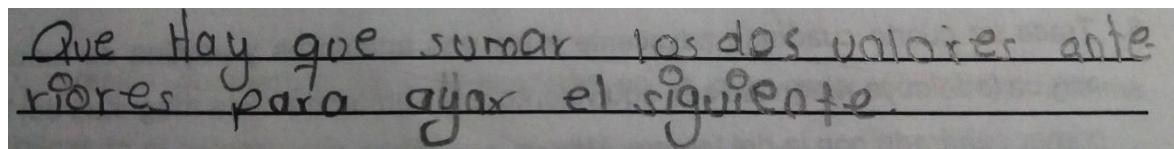 Que Hay que sumar los dos valores ante
riores para ayar el siguiente.